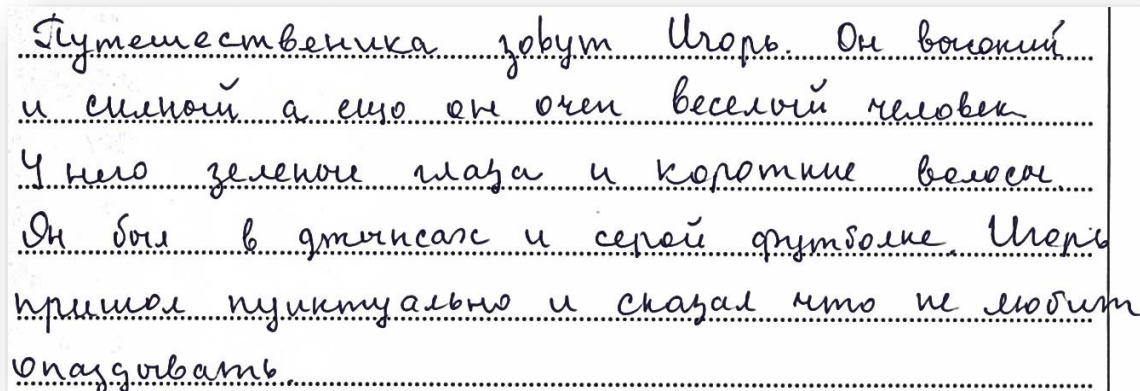 Путешественика зовут Игорь. Он высокий
и силный а ещо он очен веселый человек
У него зеленые глаза и короткие волосы.
Он был в джинсах и серой футболке. Игорь
пришол пунктуально и сказал что не любит
опаздывать.